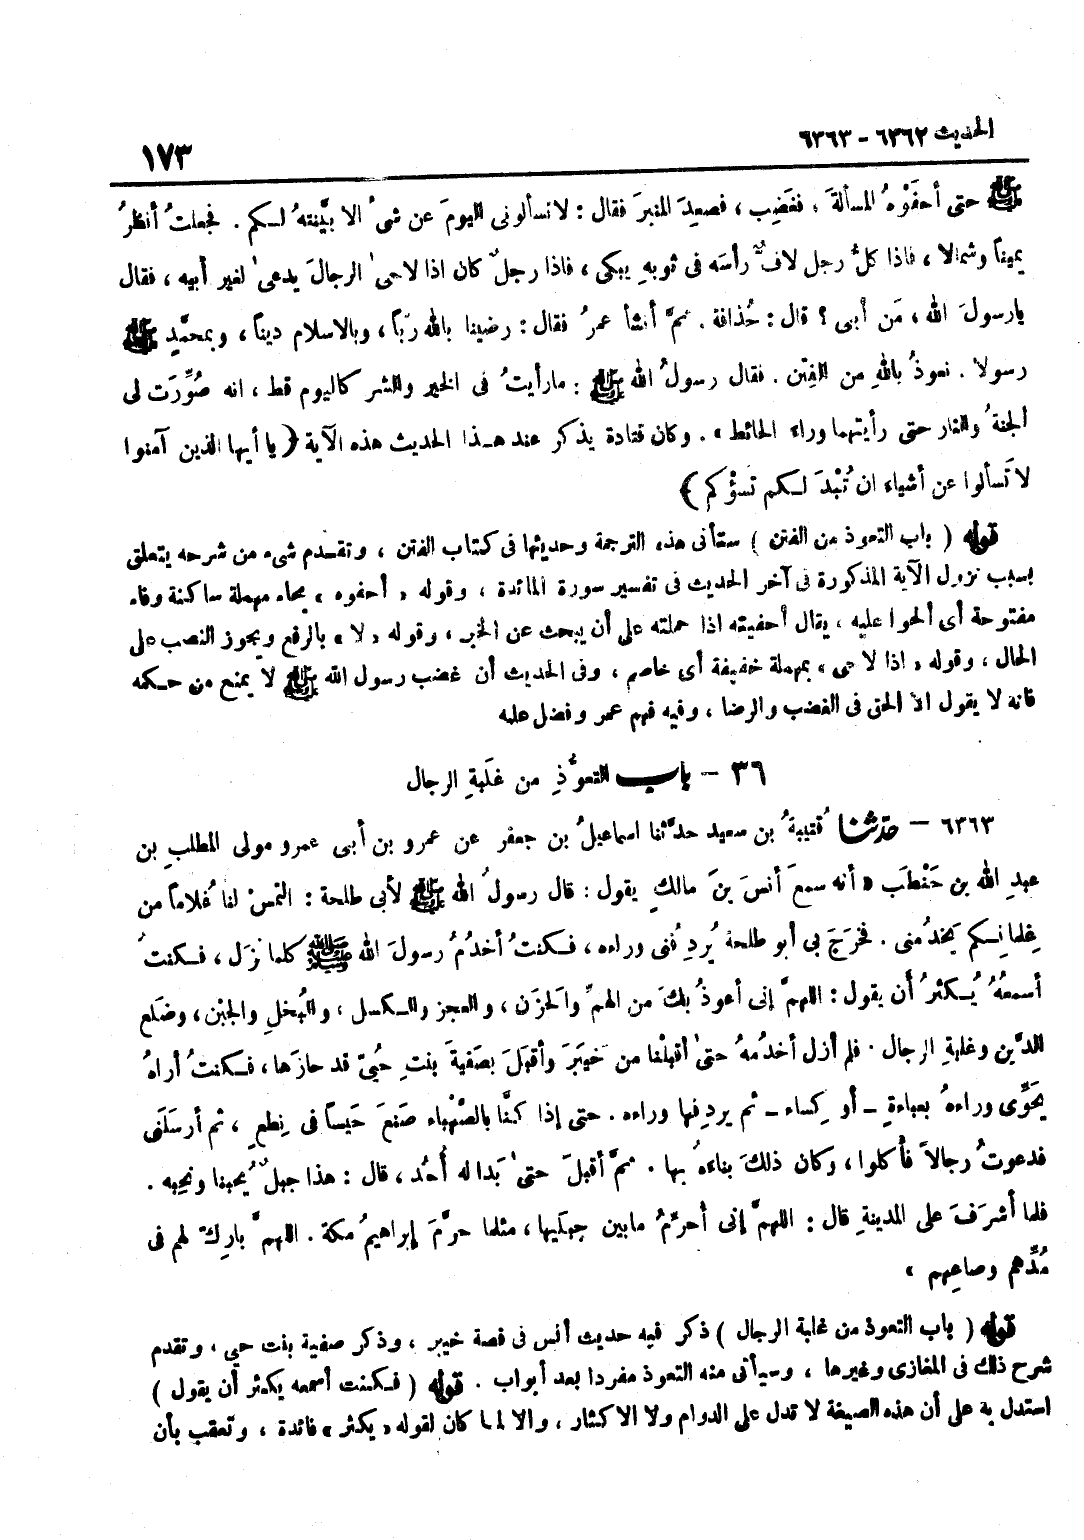 الحديث ٦٣٦٢ - ٦٣٦٣
١٧٣
ﷺ حتى أحفَوْهُ المسألةَ ، فغَضِب ، فصعِدَ المنبرَ فقال : لا تسألونى اليومَ عن شىءٍ الا بيَّنته لـكم . فجعلتُ أنظرُ
يميناً وشمالا ، فاذا كلُّ رجل لافٌّ رأسَه فى ثوبهِ يبكى ، فاذا رجلٌ كان اذا لاحىٰ الرجالَ يدعىٰ لغير أبيه ، فقال
يا رسولَ الله ، مَن أبى ؟ قال : حُذافة . ثمَّ أنشأ عمرُ فقال : رضينا بالله ربّاً ، وبالاسلام ديناً ، وبمحمَّدٍ ﷺ
رسولا . نعوذُ باللهِ من الفِتَن . فقال رسولُ الله ﷺ : ما رأيتُ فى الخير والشر كاليوم قط ، انه صُوِّرَت لى
الجنةُ والنار حتى رأيتهما وراء الحائط » . وكان قتادة يذكر عند هـذا الحديث هذه الآية ﴿ يا أيها الذين آمنوا
لا تَسألوا عن أشياء ان تُبْدَ لـكم تَسؤْكم ﴾
قوله ( باب التعوذ من الفتن ) ستأتى هذه الترجمة وحديثها فى كتاب الفتن ، وتقـدم شىء من شرحه يتعلق
بسبب نزول الآية المذكورة فى آخر الحديث فى تفسير سورة المائدة ، وقوله « أحفوه » بحاء مهملة ساكنة وفاء
مفتوحة أى ألحوا عليه ، يقال أحفيته اذا حملته على أن يبحث عن الخبر ، وقوله « لا » بالرفع ويجوز النصب على
الحال ، وقوله « اذا لاحى » بمهملة خفيفة أى خاصم ، وفى الحديث أن غضب رسول الله ﷺ لا يمنع من حـكمه
فانه لا يقول الا الحق فى الغضب والرضا ، وفيه فهم عمر وفضل علمه
٣٦ - باب التعوُّذِ من غلَبةِ الرجال
٦٣٦٣ - حدثنا قُتيبةُ بن سعيد حدَّثنا اسماعيلُ بن جعفر عن عمرو بن أبى عمرو مولى المطلبِ بن
عبدِ الله بن حَنْطَب « أنه سمعَ أنسَ بنَ مالكٍ يقول : قال رسولُ الله ﷺ لأبى طلحة : التمسْ لنا غُلاماً من
غِلمانِـكم يَخدُمنى . فخرَجَ بى أبو طلحةَ يُردِفُنى وراءه ، فـكنتُ أخدُمُ رسولَ الله ﷺ كلما نزَل ، فـكنتُ
أسمعُهُ يُـكثرُ أن يقول : اللهمَّ إنى أعوذُ بكَ من الهمِّ والحزَن ، والعجز والـكسل ، والبُخلِ والجبْن ، وضَلَعِ
الدَّين وغلبةِ الرجال . فلم أزل أخدُمهُ حتىٰ أقبلْنا من خَيبَرَ وأقبَلَ بصَفيةَ بنتِ حُيَىّ قد حازَها ، فـكنتُ أراهُ
يُحَوِّى وراءهُ بعباءةٍ – أو كِساء – ثم يردِفها وراءه . حتى إذا كنَّا بالصَّهباء صَنعَ حَيساً فى نِطعٍ ، ثم أرسَلَنى
فدعوتُ رجالاً فأكلوا ، وكان ذلكَ بناءهُ بها . ثمَّ أقبلَ حتىٰ بَدا له أُحُد ، قال : هذا جبلٌ يُحبنا ونحِبه .
فلما أشرَفَ على المدينةِ قال : اللهمَّ إنى أحرِّمُ ما بين جبلَيها ، مثلما حرَّمَ إبراهيمُ مكة . اللهمَّ بارِكْ لهم فى
مُدِّهم وصاعِهم »
قوله ( باب التعوذ من غلبة الرجال ) ذكر فيه حديث أنس فى قصة خيبر ، وذكر صفية بنت حيي ، وتقدم
شرح ذلك فى المغازى وغيرها ، وسيأتى منه التعوذ مفردا بعد أبواب . قوله ( فـكنت أسمعه يكثر أن يقول )
استدل به على أن هذه الصيغة لا تدل على الدوام ولا الاكثار ، والا لما كان لقوله « يكثر » فائدة ، وتعقب بأن